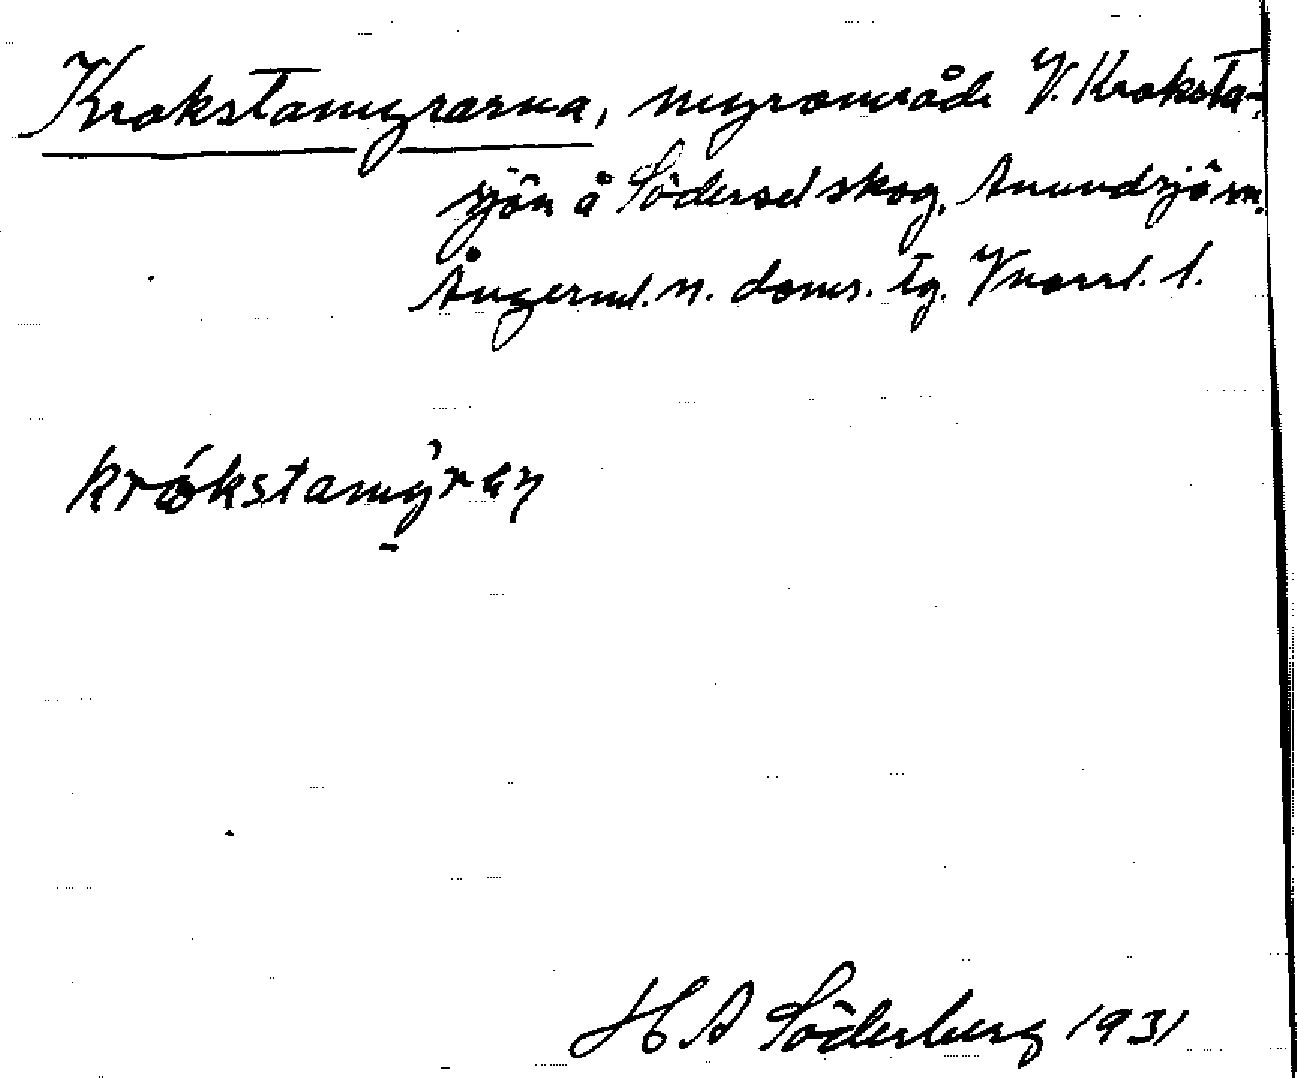 Krokstamyrarna, myrområde V. Kroksta-
sjön å Södersel skog, Anundsjö sn.
Ångerml. n. doms. tg. Vnorrl. l.
krókstamy̌ran
H A Söderberg 1931